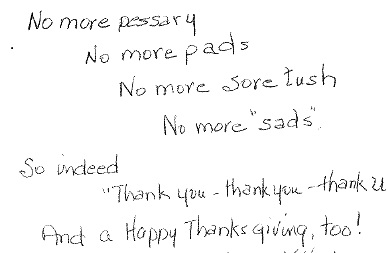 No more pessary
No more pads
No more sore tush
No more "sads".
So indeed
"Thank you - thank you - thank u
And a Happy Thanksgiving, too!